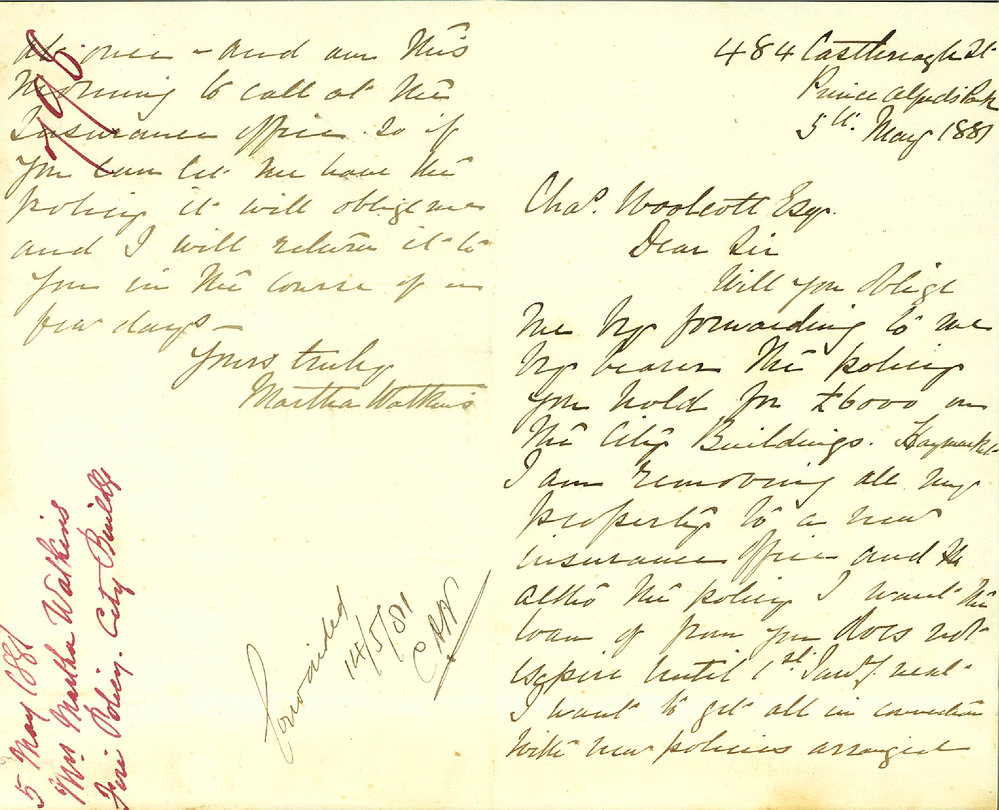 484 Castlereagh St
Prince Alfreds Park
5th. May 1881
Chas. Woolcott Esqr.
Dear Sir
Will you oblige
me by forwarding to me
by bearer the policy
you hold for £6000 on
the City Buildings. Haymarket
I am removing all my
property to a new
insurance office and
altho the policy I want the
loan of from you does not
expire until 1st. Jany. next
I want to get all in connection
with new policies arranged
at once - and am this
morning to call at the
Insurance office so if
you can let me have the
policy it will oblige me
and I will return it to
you in the course of a
few days -
Yours truly
Martha Watkins
798
5 May 1881
Mrs. Martha Watkins
Fire Policy. City Buildgs
Forwarded
14/5/81